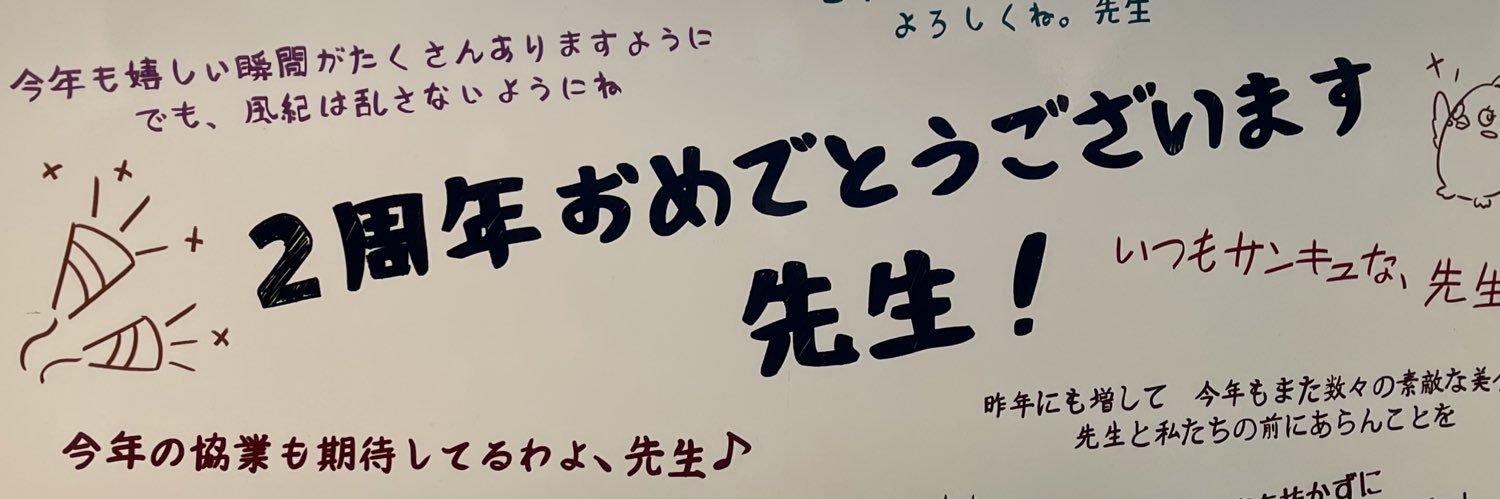 よろしくね。先生
今年も嬉しい瞬間がたくさんありますように
でも、風紀は乱さないようにね
2周年おめでとうございます
先生!
いつもサンキュな、先生
昨年にも増して 今年もまた数々の素敵な美
先生と私たちの前にあらんことを
今年の協業も期待してるわよ、先生♪
かずに